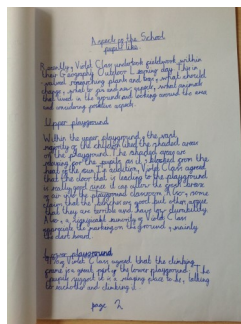 Aspects of the School
pupils like
Recently, Violet Class undertook fieldwork within
their Geography Outdoor Learning day. This
involved researching plants and bugs, what should
change, what to put and new signals, what animals
that lived in the ground and looking around the area
and considering positive aspects.
Upper playground
Within the upper playground, the vast
majority of the children liked the shaded areas
on the playground. The shaded areas are
relaxing for the pupils as it's blocked from the
heat of the sun. In addition, Violet Class agreed
that the door that is leading to the playground
is really good since it can allow the great breeze
of air into the playground classroom. Also, some
claim that the benches are good but other argue
that they are terrible and have no durability.
Also, a significant minority of Violet Class
appreciate the markings on the ground, mainly
the dart board.
Lower playground
Firstly, Violet Class agreed that the climbing
frame is a great part of the lower playground. The
pupils suggest it is a relaxing place to be, talking
to each other and climbing it.
page 2